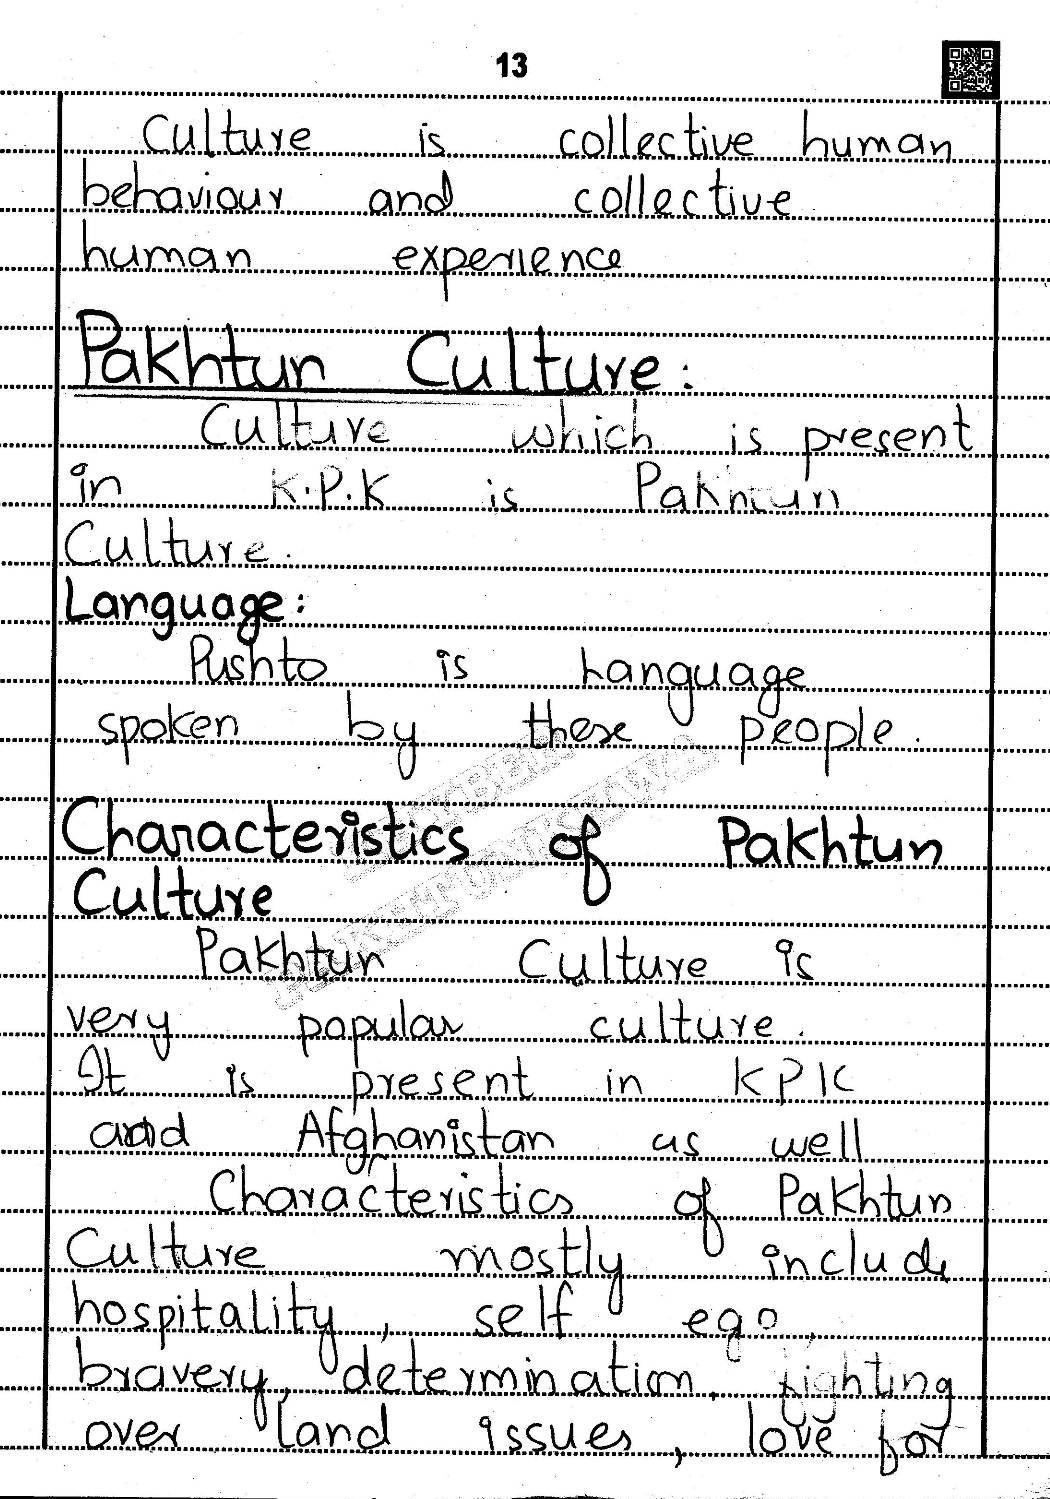 13
Culture is collective human
behaviour and collective
human experience
Pakhtun Culture:
Culture which is present
in K.P.K is Pakhtun
Culture.
Language:
Pushto is Language
spoken by these people.
Characteristics of Pakhtun
Culture
Pakhtun Culture is
very popular culture.
It is present in KPK
and Afghanistan as well
Characteristics of Pakhtun
Culture mostly include
hospitality, self ego,
bravery, determination, fighting
over land issues, love for